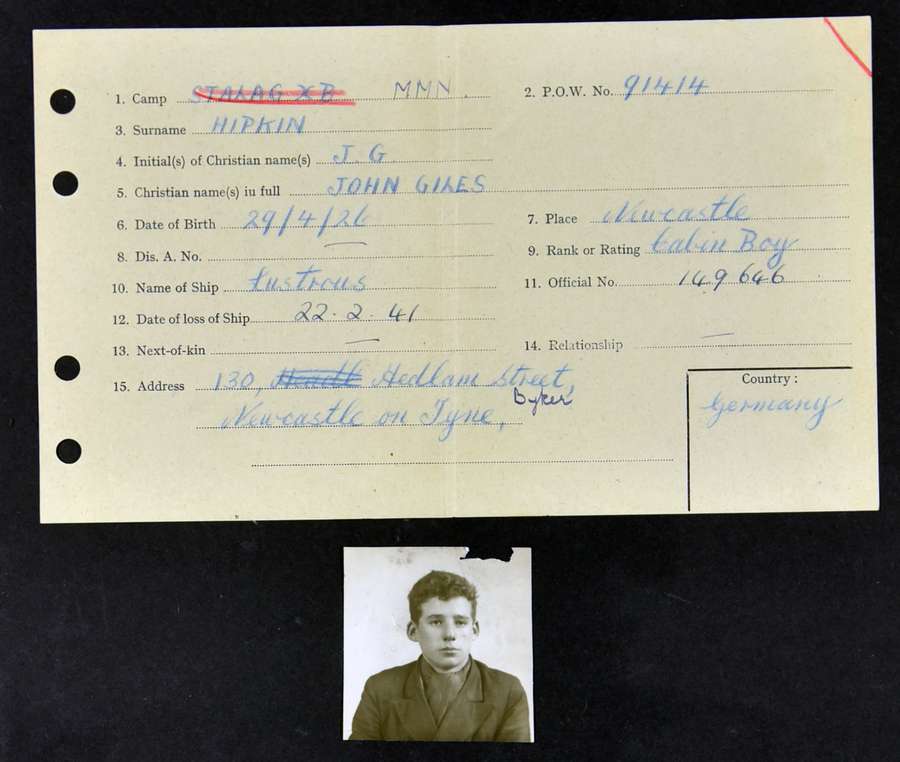 1. Camp STALAG XB MMN. 2. P.O.W. No. 91414
3. Surname HIPKIN
4. Initial(s) of Christian name(s) J. G.
5. Christian name(s) in full JOHN GILES
6. Date of Birth 29/4/26 7. Place Newcastle
8. Dis. A. No. — 9. Rank or Rating Cabin Boy
10. Name of Ship Lustrous 11. Official No. 149646
12. Date of loss of Ship 22.2.41
13. Next-of-kin — 14. Relationship —
15. Address 130, Hedlam Street,
Newcastle on Tyne, Byker
Country:
Germany